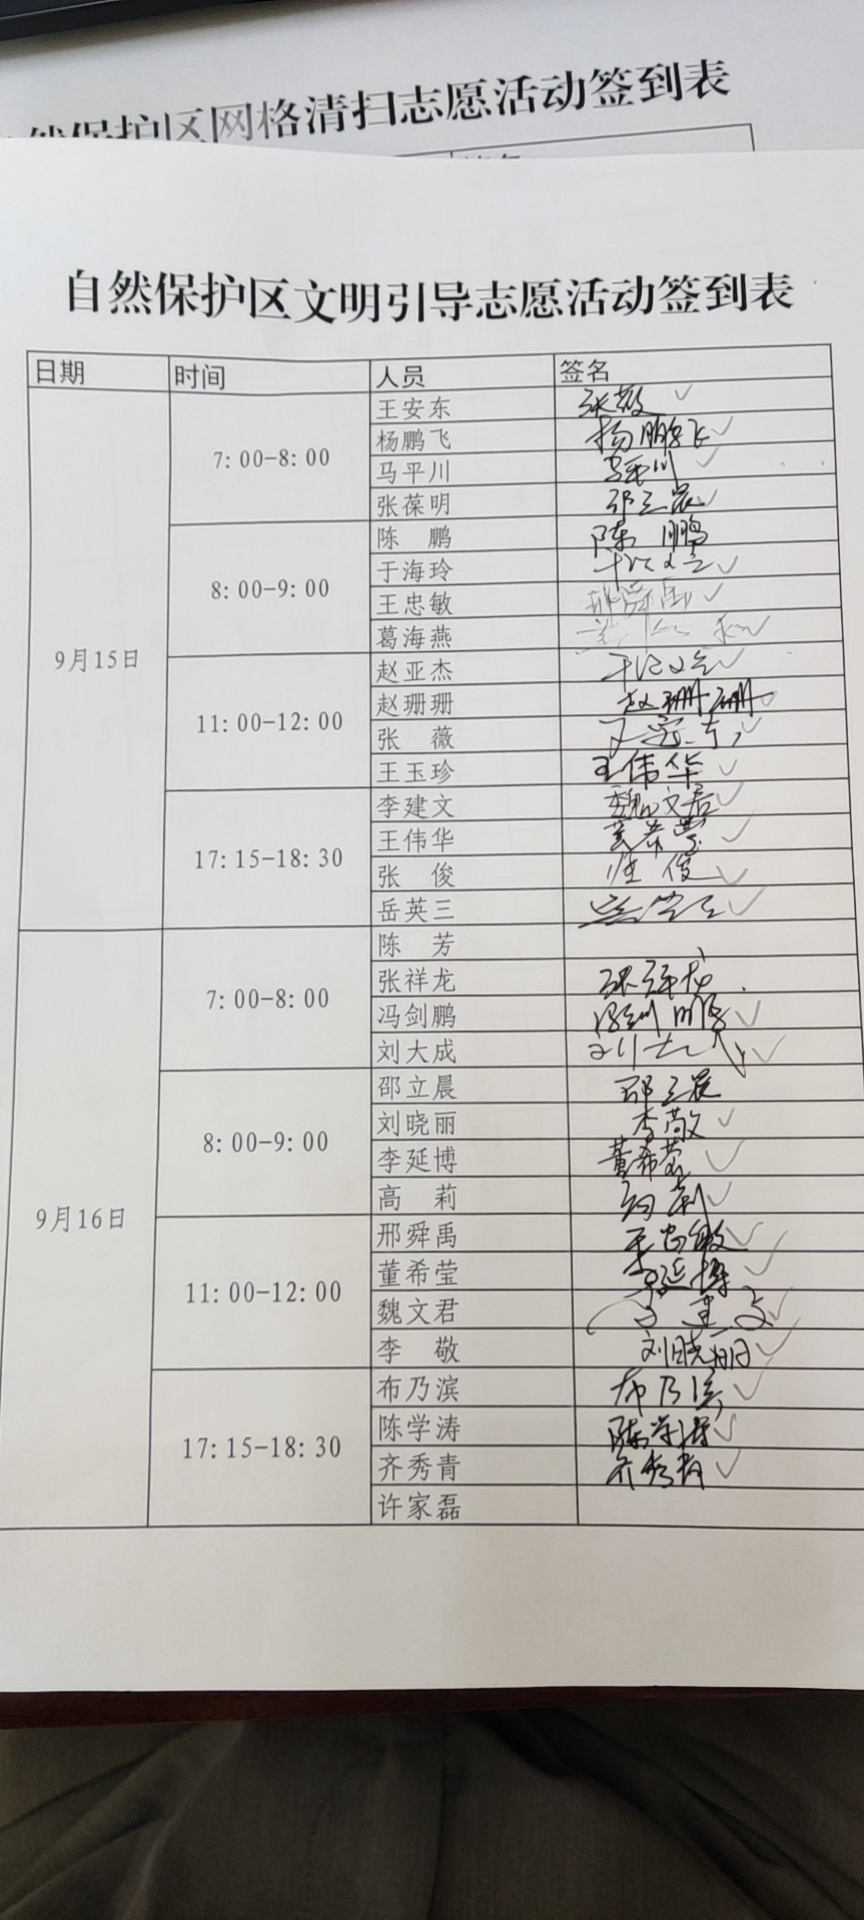 自然保护区网格清扫志愿活动签到表
自然保护区文明引导志愿活动签到表
日期 时间 人员 签名
9月15日
7:00-8:00
王安东
杨鹏飞 杨鹏飞
马平川 马平川
张葆明 邵立晨
8:00-9:00
陈 鹏 陈 鹏
于海玲
王忠敏 邢舜禹
葛海燕
11:00-12:00
赵亚杰
赵珊珊 赵珊珊
张 薇
王玉珍 王伟华
17:15-18:30
李建文 魏文君
王伟华 董希莹
张 俊 张 俊
岳英三 岳英三
9月16日
7:00-8:00
陈 芳
张祥龙 张祥龙
冯剑鹏 冯剑鹏
刘大成 刘大成
8:00-9:00
邵立晨 邵立晨
刘晓丽 李敬
李延博 董希莹
高 莉 高莉
11:00-12:00
邢舜禹 王忠敏
董希莹 李延博
魏文君 李建文
李 敬 刘晓丽
17:15-18:30
布乃滨 布乃滨
陈学涛 陈学涛
齐秀青 齐秀青
许家磊